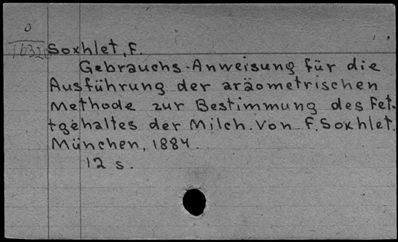 0
Soxhlet, F.
Gebrauchs-Anweisung für die
Ausführung der aräometrischen
Methode zur Bestimmung des Fet-
tgehaltes der Milch. Von F. Soxhlet.
München, 1884.
12 s.